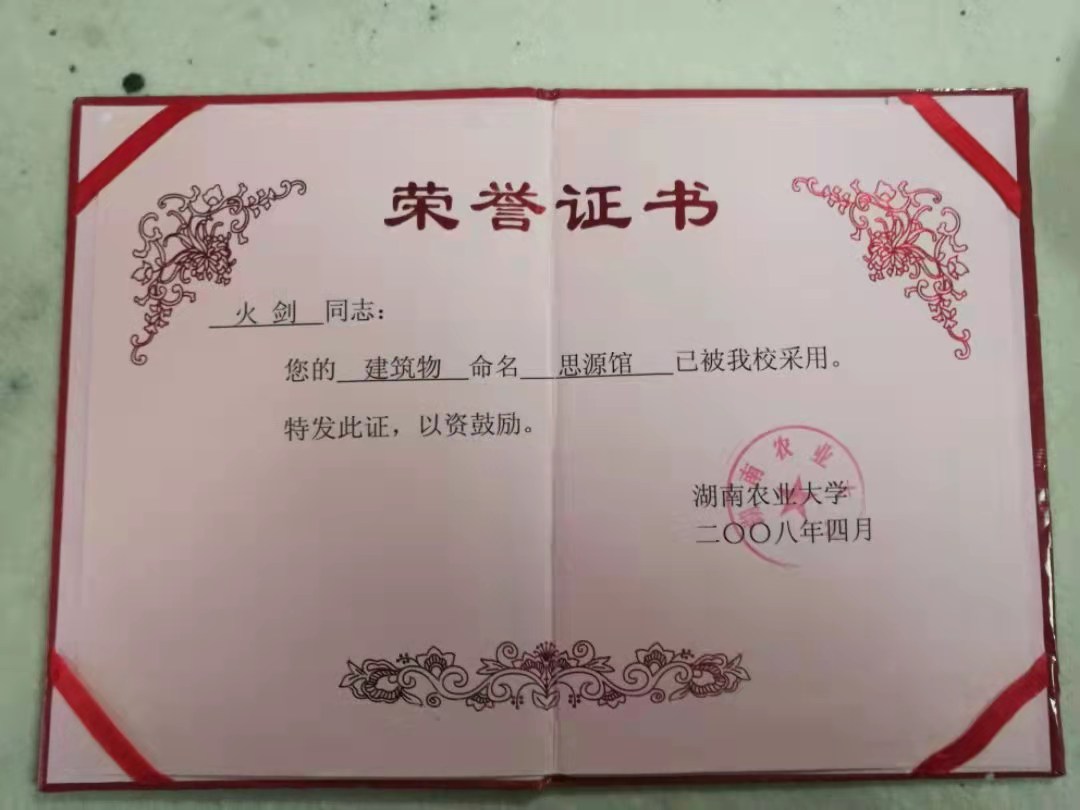 荣誉证书
火剑同志：
您的建筑物命名思源馆已被我校采用。
特发此证，以资鼓励。
湖南农业大学
二〇〇八年四月
南农业